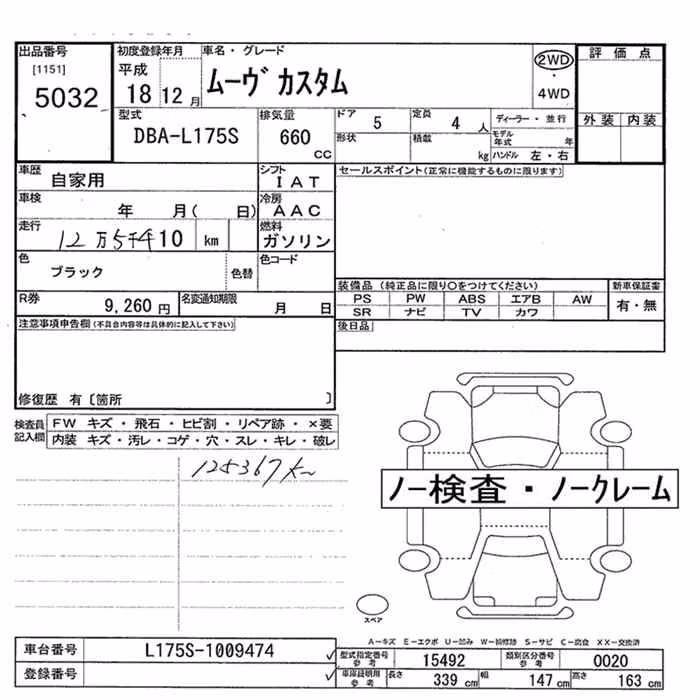 出品番号 初度登録年月 車名・グレード 2WD 評価点
[1151] 平成 ムーヴ カスタム ・
5032 18 12月 4WD
型式 排気量 ドア 5 定員 4人 ディーラー・並行 外装 内装
DBA-L175S 660 cc 形状 積載 kg モデル年式 年
ハンドル 左・右
車歴 自家用 シフト IAT セールスポイント(正常に機能するものに限ります)
車検 年 月( 日) 冷房 AAC
走行 12万5千410 km 燃料 ガソリン
色 ブラック 色替 色コード
装備品 (純正品に限り○をつけてください) 新車保証書
R券 9,260円 名変通知期限 月 日 PS PW ABS エアB AW 有・無
SR ナビ TV カワ
注意事項申告欄(不具合内容等は具体的に記入して下さい) 後日品
修復歴 有〔箇所 〕
検査員記入欄 FW キズ・飛石・ヒビ割・リペア跡・×要
内装 キズ・汚レ・コゲ・穴・スレ・キレ・破レ
125367km
ノー検査・ノークレーム
スペア
A−キズ E−エクボ U−凹み W−補修跡 S−サビ C−腐食 XX−交換済
車台番号 L175S-1009474 型式指定番号参考 15492 類別区分番号参考 0020
登録番号 車庫証明用参考 長さ 339cm 幅 147cm 高さ 163cm